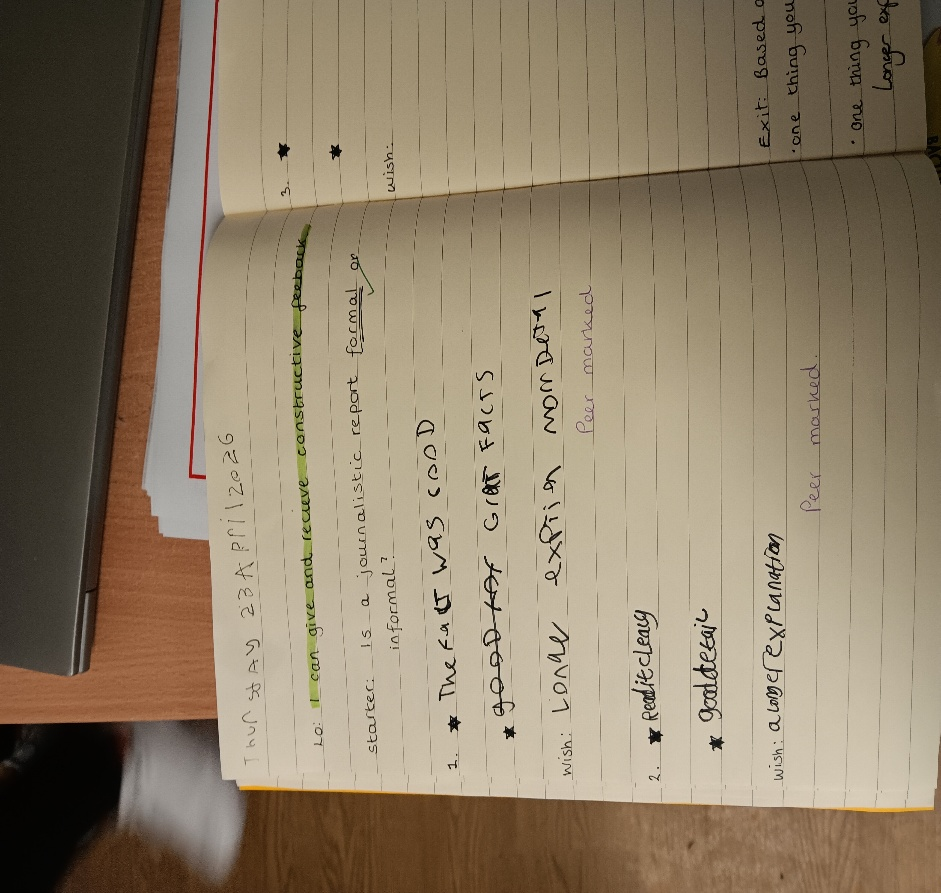 Thurstay 23 April 2026
LO: I can give and recieve constructive feeback
starter: Is a journalistic report formal or
informal?
1. ★ The Fact was GOOD
★ good for Great Facts
wish: Longer explain more Detail
Peer marked
2. ★ Read it clearly
★ good detail
wish: a longer explanation
Peer marked.
3. ★
★
wish:
Exit: Based o
· one thing you
· one thing you
Longer exp